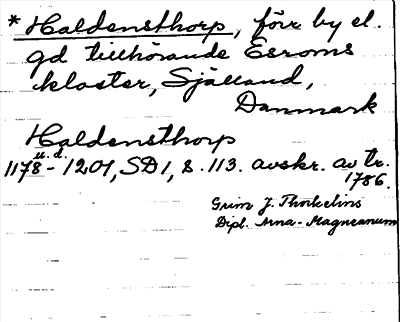 * Haldensthorp, förr by el.
gd tillhörande Esroms
kloster, Själland,
Danmark
Haldensthorp
u.d.
1178-1201, SD1, s. 113. avskr. av tr.
1786.
Grim J. Thorkelins
Dipl. Arna-Magneanum